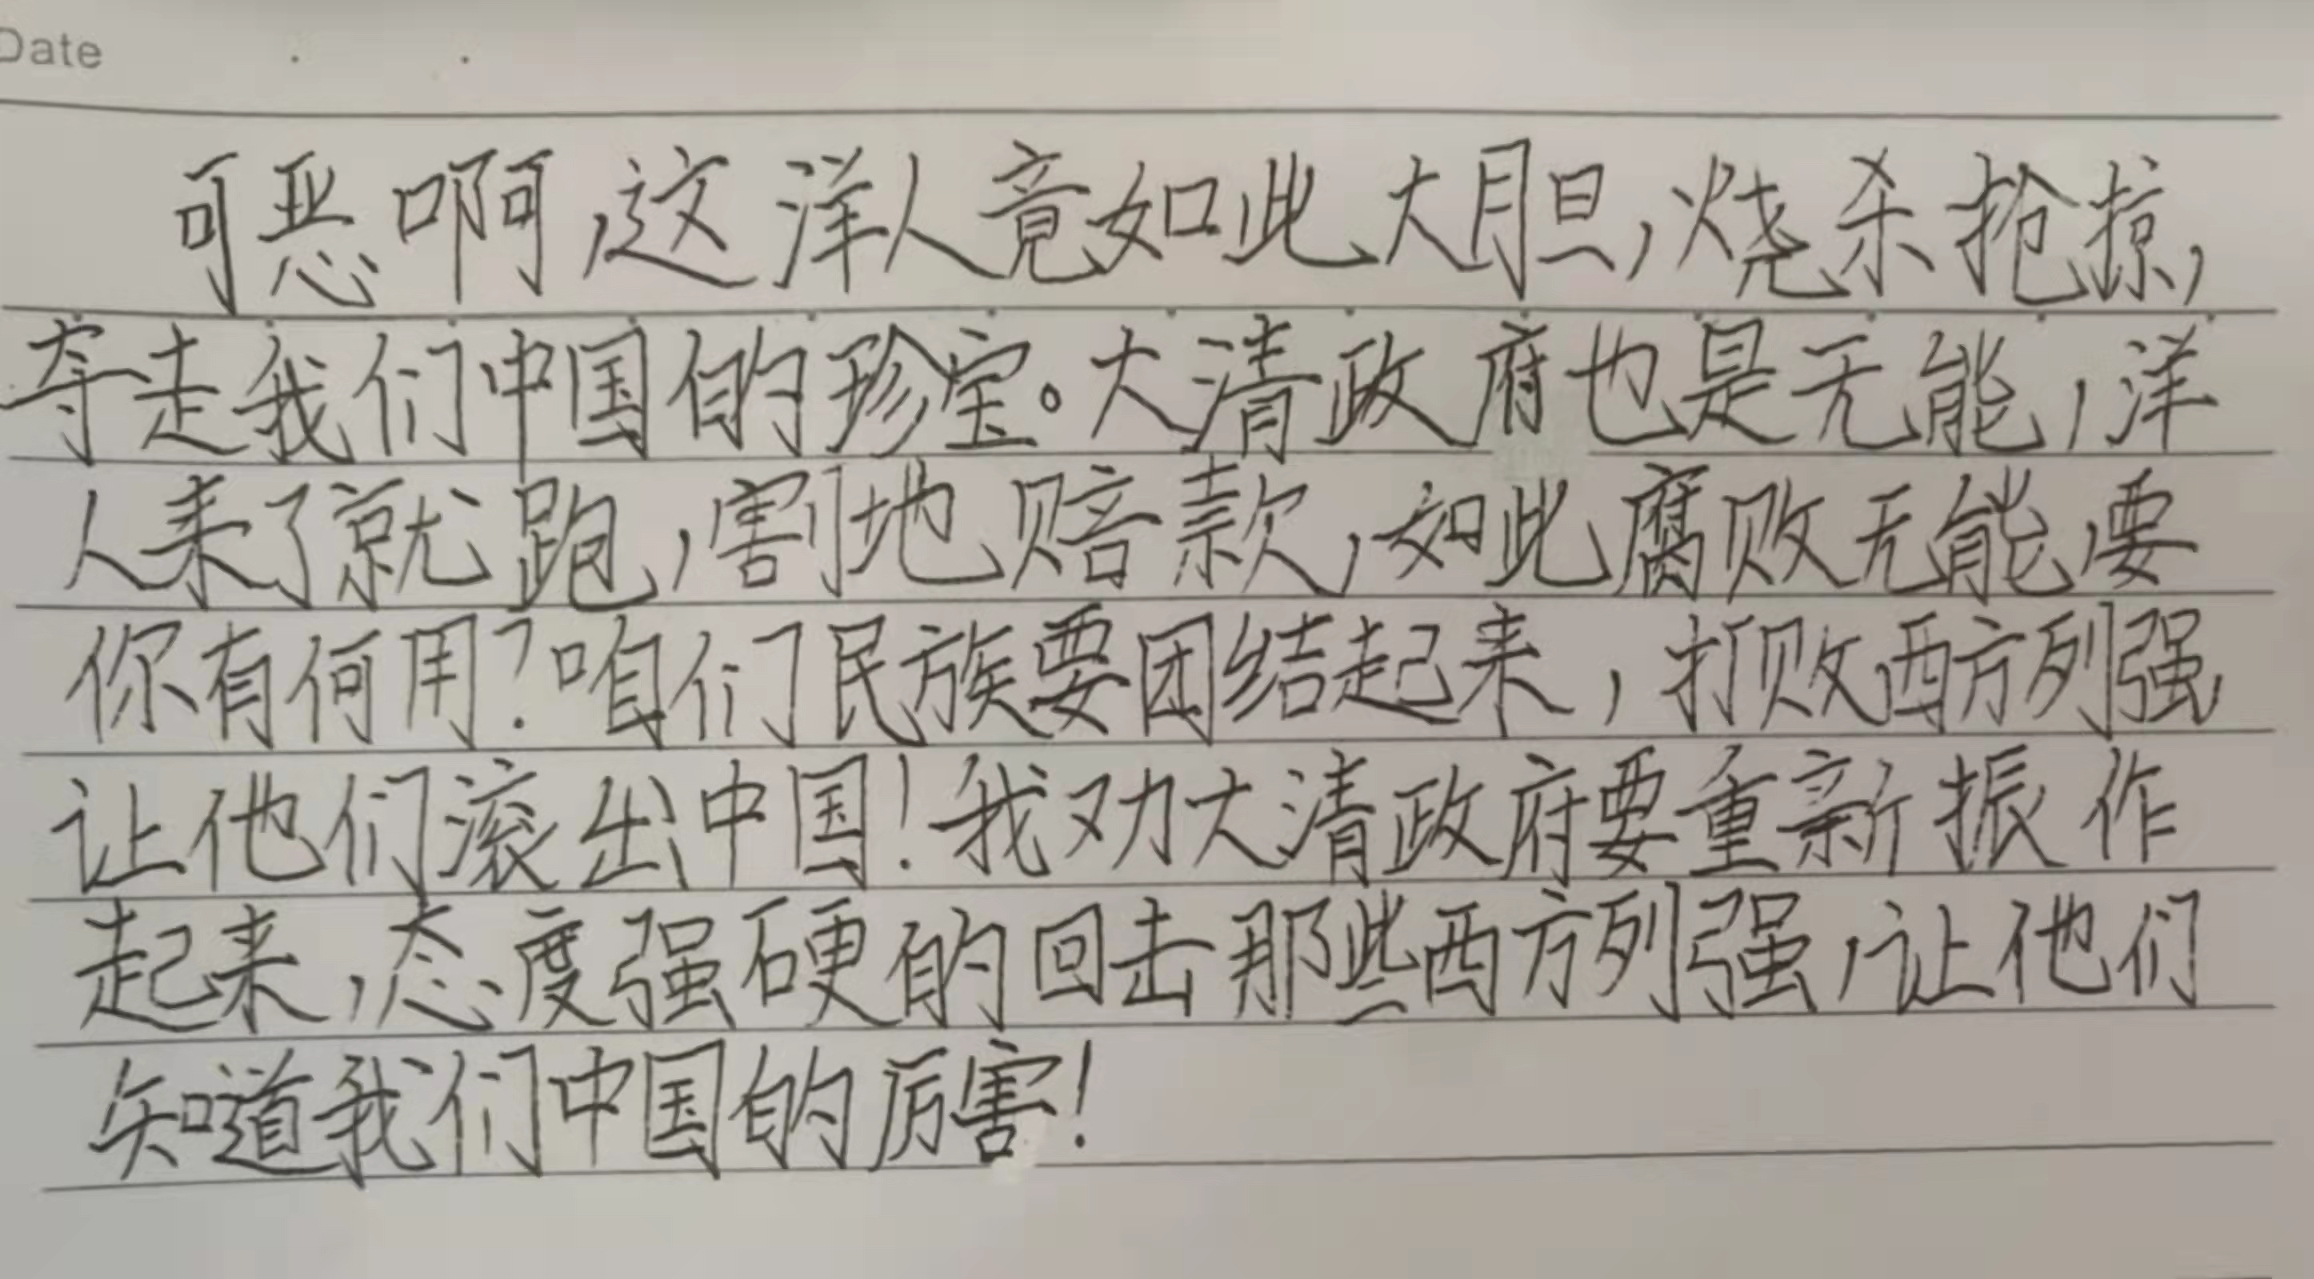 Date
可恶啊,这洋人竟如此大胆,烧杀抢掠,
夺走我们中国的珍宝。大清政府也是无能,洋
人来了就跑,割地赔款,如此腐败无能,要
你有何用?咱们民族要团结起来,打败西方列强
让他们滚出中国!我劝大清政府要重新振作
起来,态度强硬的回击那些西方列强,让他们
知道我们中国的厉害!